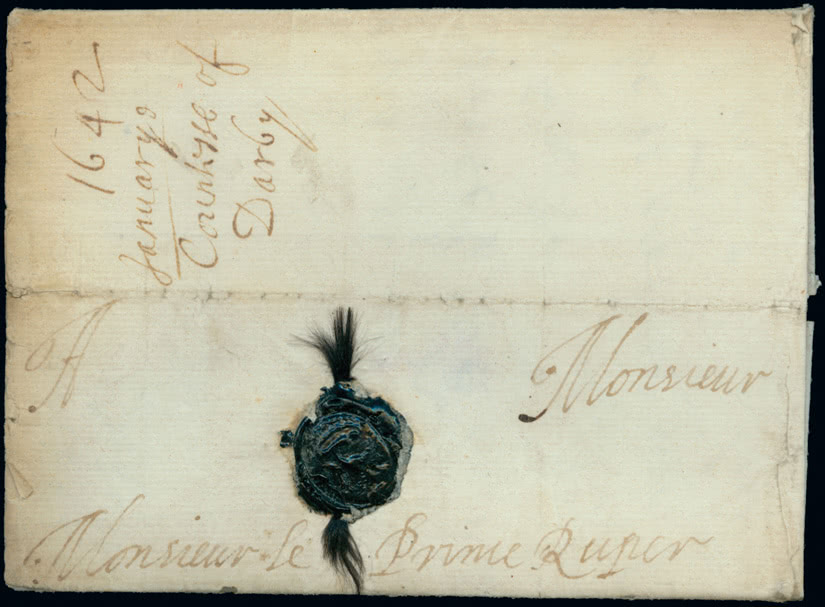 1642
January
Countysse of
Darby
A Monsieur
Monsieur le Prince Ruper